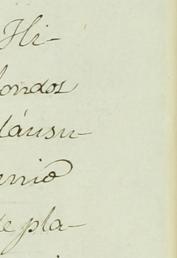 Hi-
ondos
láusu-
nnio
e pla-